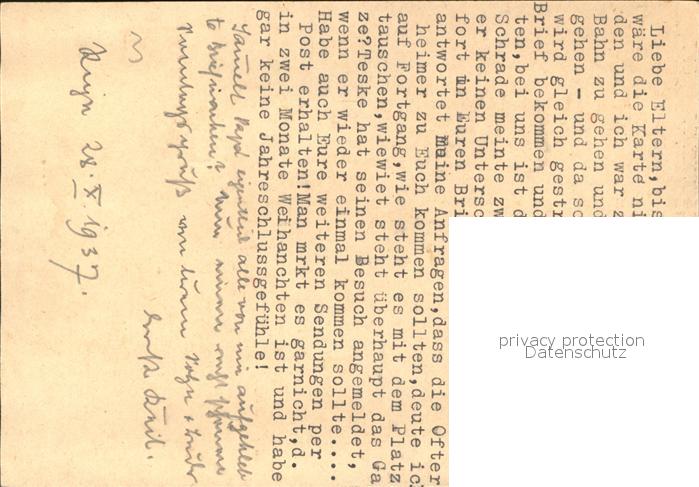 Liebe Eltern, bis
wäre die Karte ni
den und ich war z
Bahn zu gehen und
gehen - und da so
wird gleich gestr
Brief bekommen und
ten, bei uns ist d
Schrade meinte zw
er keinen Untersc
fort in Euren Bri
antwortet Meine Anfragen, dass die Ofter
heimer zu Euch kommen sollten, deute ich
auf Fortgang, wie steht es mit dem Platz
tauschen, wiewiet steht überhaupt das Ga
ze? Teske hat seinen Besuch angemeldet,
wenn er wieder einmal kommen sollte....
Habe auch Eure weiteren Sendungen per
Post erhalten! Man mrkt es garnicht, d.
in zwei Monate Weihanchten ist und habe
gar keine Jahreschlussgefühle!
eigentlich alle von mir aufgekleb
Briefmarken? Nun einen
Sonntagsgruß von Eurem Sohn + Bruder
28. X. 1937.
privacy protection
Datenschutz